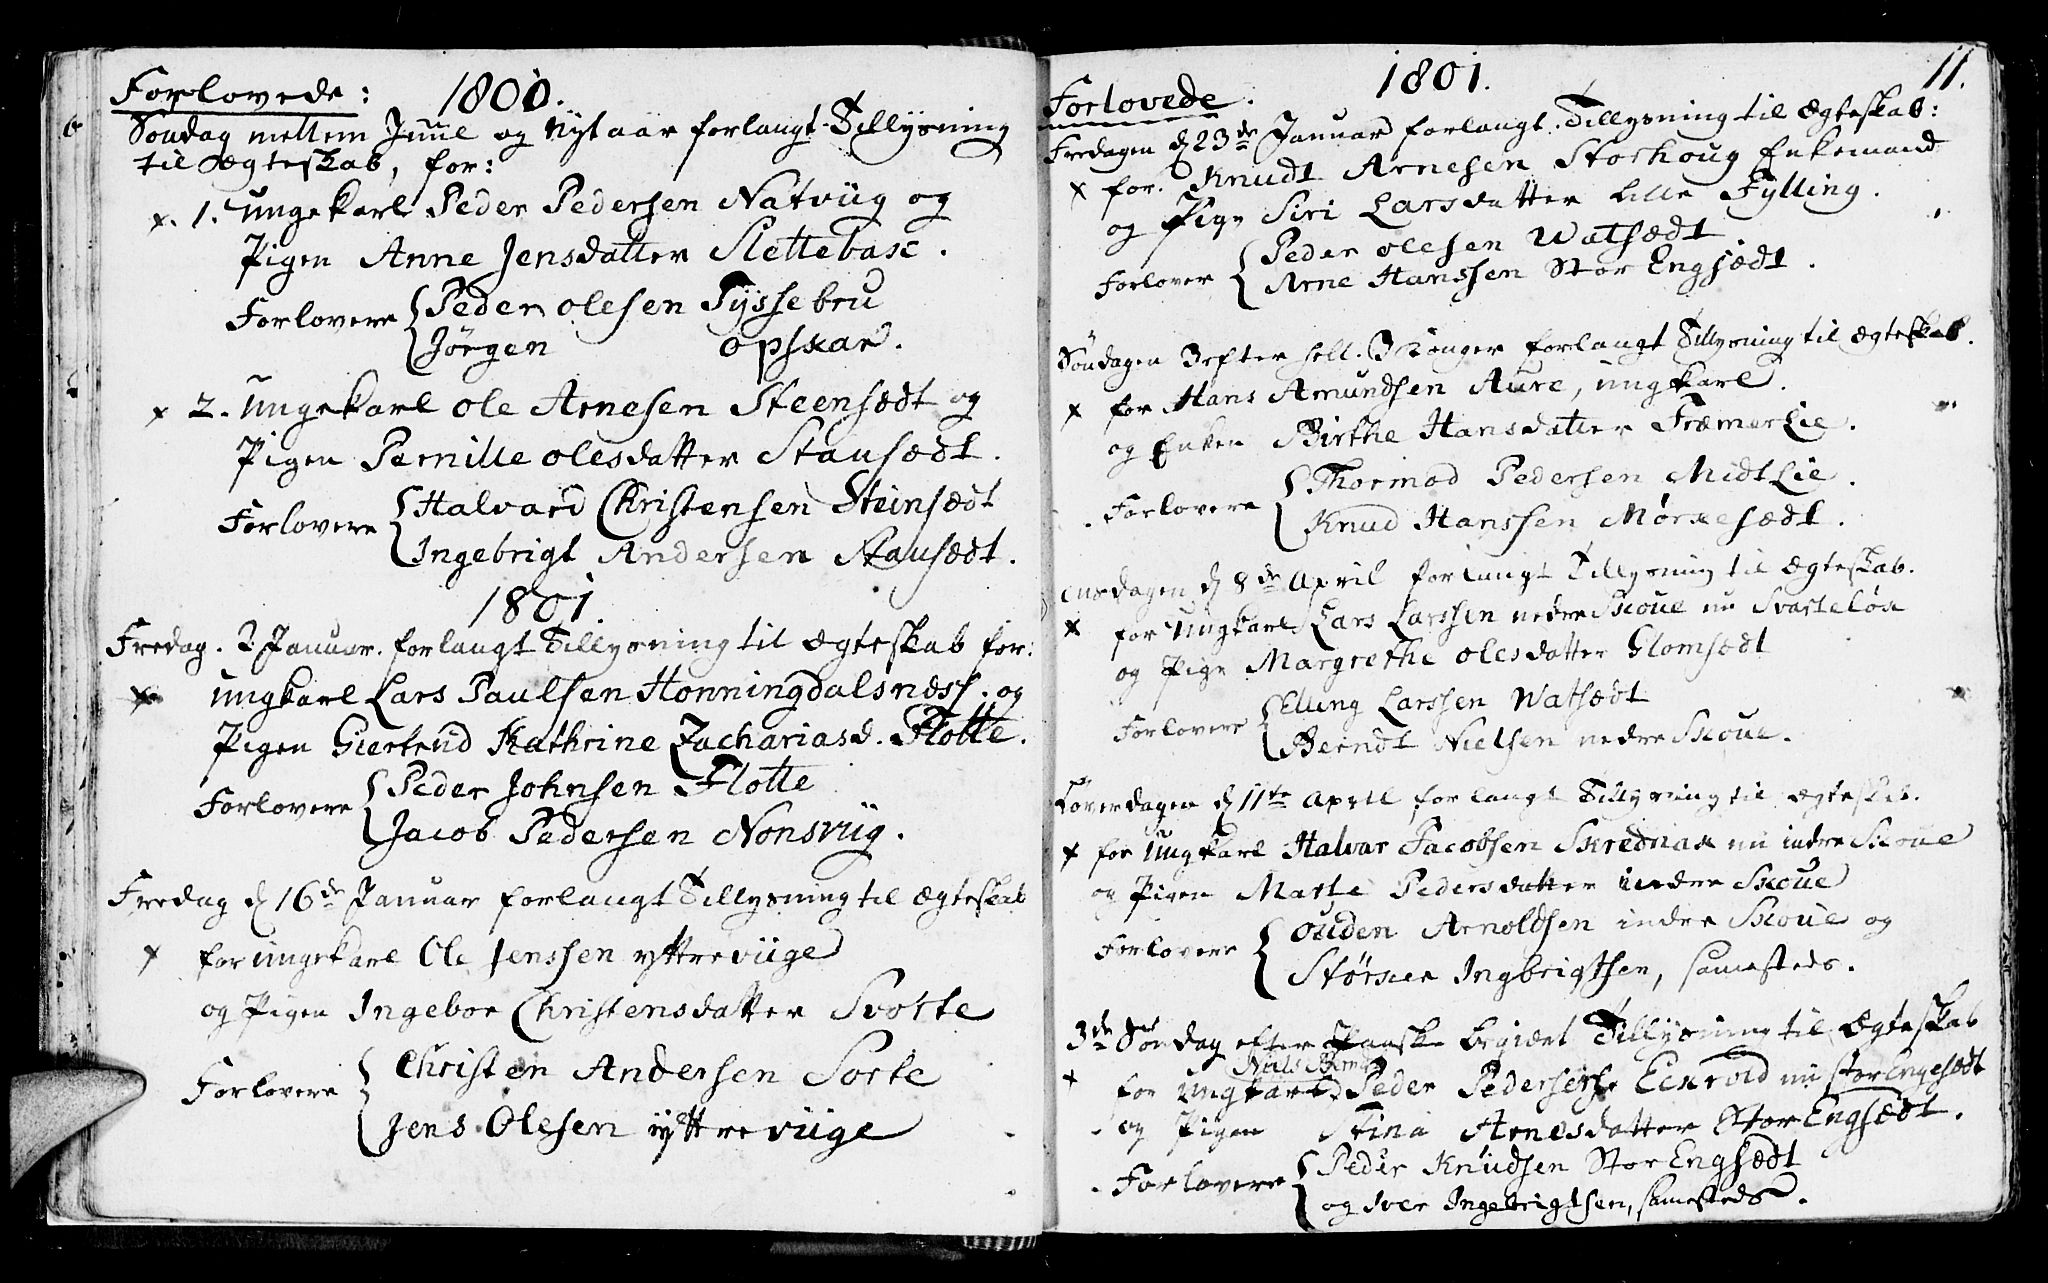 Forlovede: 1800.
Søndag mellem Juul og Nytaar forlangt Tillysning
til Ægteskab, for:
x. 1. Ungekarl Peder Pedersen Natviig og
Pigen Anne Jensdatter Slettebaxe.
Forlovere Peder Olesen Tyssebru
Jørgen Opskar.
x 2. Ungekarl Ole Arnesen Steensædt og
Pigen Pernille Olesdatter Stausædt.
Forlovere Halvard Christensen Steinsædt
Ingebrigt Andersen Stausædt.
1801
Fredag. 2 Januar. forlangt Tillysning til Ægteskab for:
x ungkarl Lars Paulsen Honningdalsnæss. og
Pigen Giertrud Kathrine Zachariasd. Flotte.
Forlovere Peder Johnsen Flotte
Jacob Pedersen Nonsviig.
Fredag d 16de Januar forlangt Tillysning til Ægteskab
x for ungekarl Ole Jenssen yttreviige
og Pigen Ingebor Christensdatter Svorte
Forlovere Christen Andersen Sorte
Jens Olesen yttreviige
1801. 11.
Forlovede.
Fredagen d 23de Januar forlangt Tillysning til Ægteskab:
x for. Knudt Arnesen Storhoug Enkemand
og Pige Siri Larsdatter Lille Fylling.
Forlover Peder Olesen Watsædt
Arne Hanssen Stor Engsædt.
Søndagen 3 efter hell. 3 Konger forlangt Tillysning til Ægteskab.
x for Hans Amundsen Aure, ungkarl.
og Enken Birthe Hansdatter Fræmerlie.
Forlovere Thormod Pedersen Midtlie.
Knud Hanssen Mørkesædt.
Onsdagen d 8de April forlangt Tillysning til Ægteskab.
x for Ungkarl Lars Larssen nedre Skoue nu Svarteløk
og Pige Margrethe Olesdatter Glomsædt
Forlovere Elling Larssen Watsædt
Berndt Nielsen nedre Skoue.
Løverdagen d 11te April forlangt Tillysning til Ægteskab.
x for Ungkarl Halvar Jacobsen Skrednak nu indre Skoue
og Pigen Marte Pedersdatter indre Skoue
Forlovere Ouden Arnoldsen indre Skoue og
Størker Ingbrigtsen, samesteds.
3de Søndag efter Paaske begiert Tillysning til Ægteskab
Niels Bernt
x for Ungkarl Peder Pedersen Eckrold nu stor Engesædt
og Pigen Stina Arnesdatter Stor Engsædt.
Forlovere Peder Knudsen Stor Engsædt
og Iver Ingebrigtsen, samesteds.